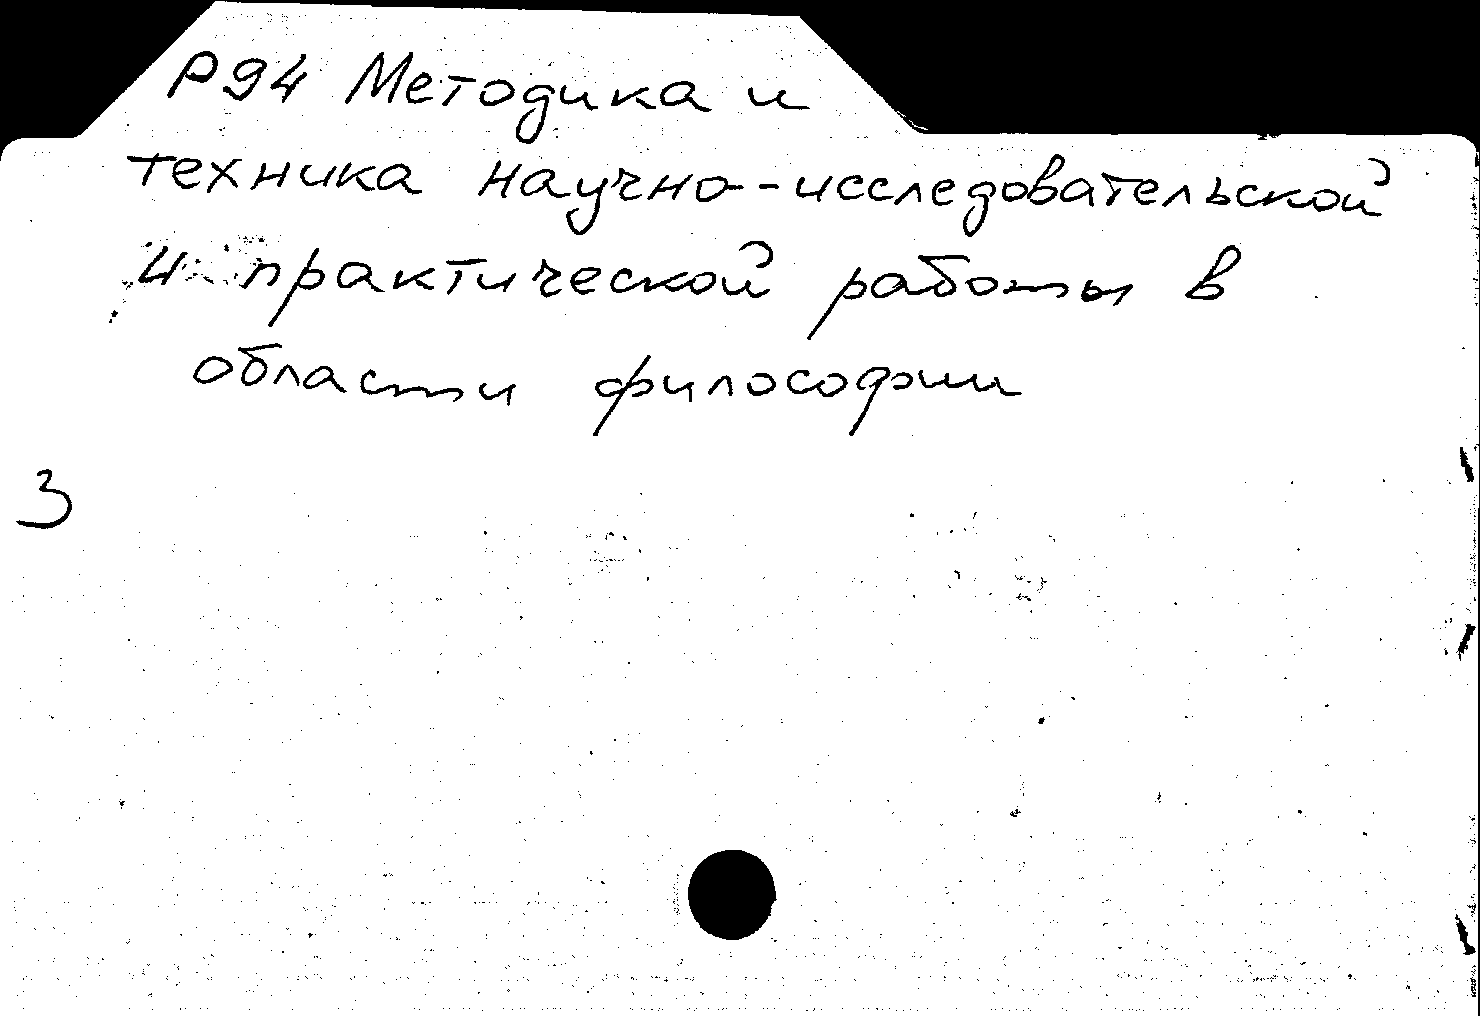 Р94 Методика и
техника научно-исследовательской
и практической работы в
области философии
3